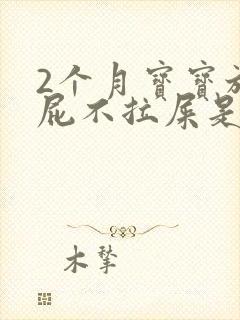 2个月寶寶放
屁不拉屎是
木擥